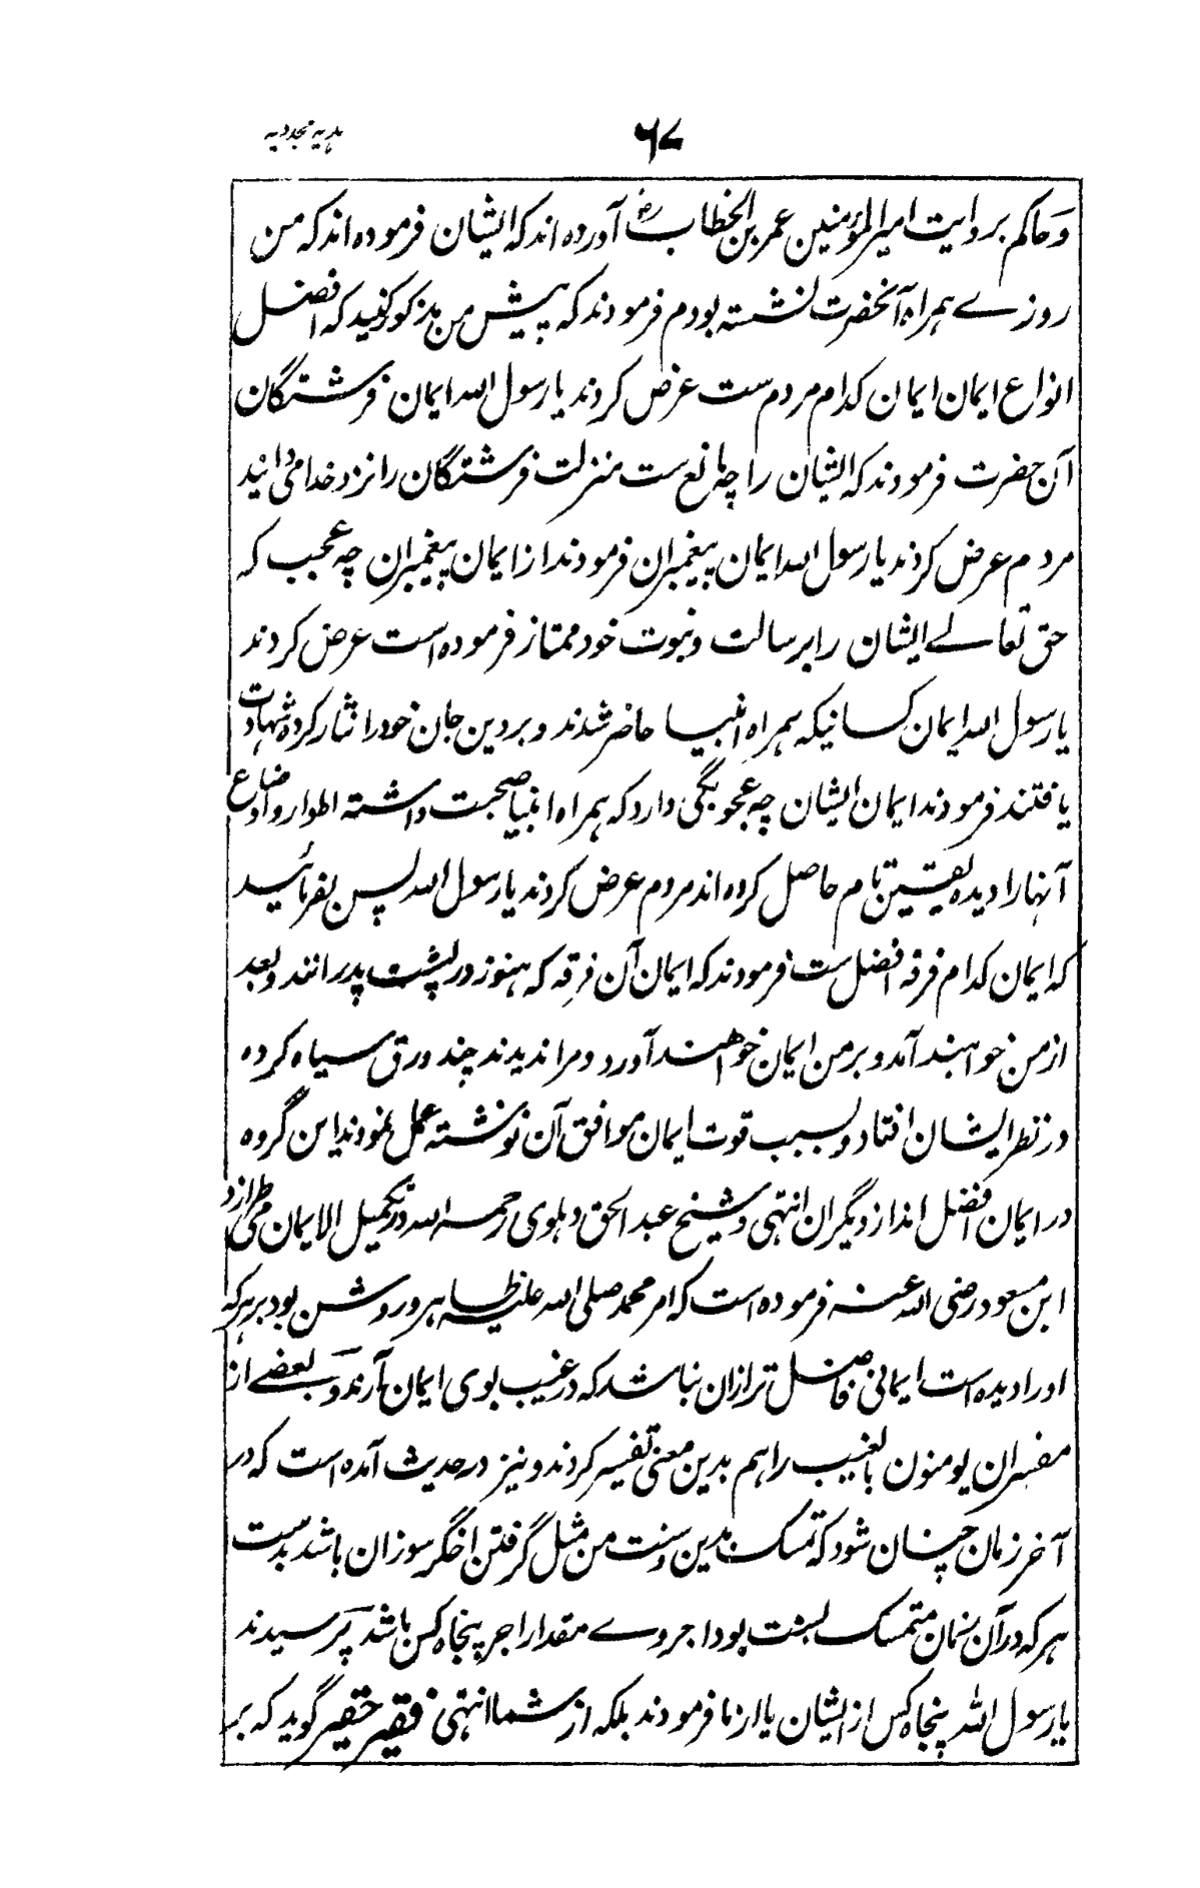 ۶۷
ہدیہ مجددیہ
وحاکم بروایت امیر المؤمنین عمر بن الخطاب رض آورده اند که ایشان فرموده اند که من
روزے ہمراه آنحضرت نشسته بودم فرمودند که پیش من مذکور کنید که افضل
انواع ایمان ایمان کدام مردم ست عرض کردند یا رسول الله ایمان فرشتگان
آن حضرت فرمودند که ایشان را چه مانع ست منزلت فرشتگان را نزد خدا می دانید
مردم عرض کردند یا رسول الله ایمان پیغمبران فرمودند از ایمان پیغمبران چه عجب که
حق تعالے ایشان را برسالت ونبوت خود ممتاز فرموده است عرض کردند
یا رسول الله ایمان کسانیکه ہمراه انبیا حاضر شدند و بر دین جان خود را نثار کرده شہادت
یافتند فرمودند ایمان ایشان چه عجوبگی دارد که ہمراه انبیا صحبت داشته اطوار واوضاع
آنہا را دیده یقین تام حاصل کرده اند مردم عرض کردند یا رسول الله پس بفرمائید
که ایمان کدام فرقه افضل ست فرمودند که ایمان آن فرقه که ہنوز در پشت پدرانند وبعد
از من خواہند آمد و بر من ایمان خواهند آورد و مرا ندیدند چند ورق سیاه کرده
در نظر ایشان افتاد وبسبب قوت ایمان موافق آن نوشته عمل نمودند این گروه
در ایمان افضل اند از دیگران انتہی وشیخ عبد الحق دہلوی رحمه الله در تکمیل الایمان می طرازد
ابن مسعود رضی الله عنه فرموده است که امر محمد صلی الله علیه ظاہر و روشن بود بر ہرکه
او را دیده است ایمانی فاضل تر ازان نباشد که در غیب بوی ایمان آرند وبعضے از
مفسران یومنون بالغیب را ہم بدین معنی تفسیر کردند ونیز در حدیث آمده است که در
آخر زمان چنان شود که تمسک بدین وسنت من مثل گرفتن اخگر سوزان باشد بدست
ہرکه در آن زمان متمسک بسنت بود اجر وے مقدار اجر پنجاه کس باشد پرسیدند
یا رسول الله پنجاه کس از ایشان یا از ما فرمودند بلکه از شما انتہی فقیر حقیر گوید که بر